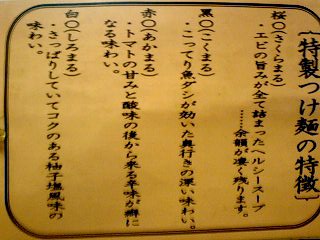 〔特製つけ麺の特徴〕
桜〇(さくらまる)
・エビの旨みが全て詰まったヘルシースープ
……余韻が凄く残ります。
黒〇(こくまる)
・こってり魚ダシが効いた奥行きの深い味わい。
赤〇(あかまる)
・トマトの甘みと酸味の後から来る辛味が癖に
なる味わい。
白〇(しろまる)
・さっぱりしていてコクのある柚子塩風味の
味わい。